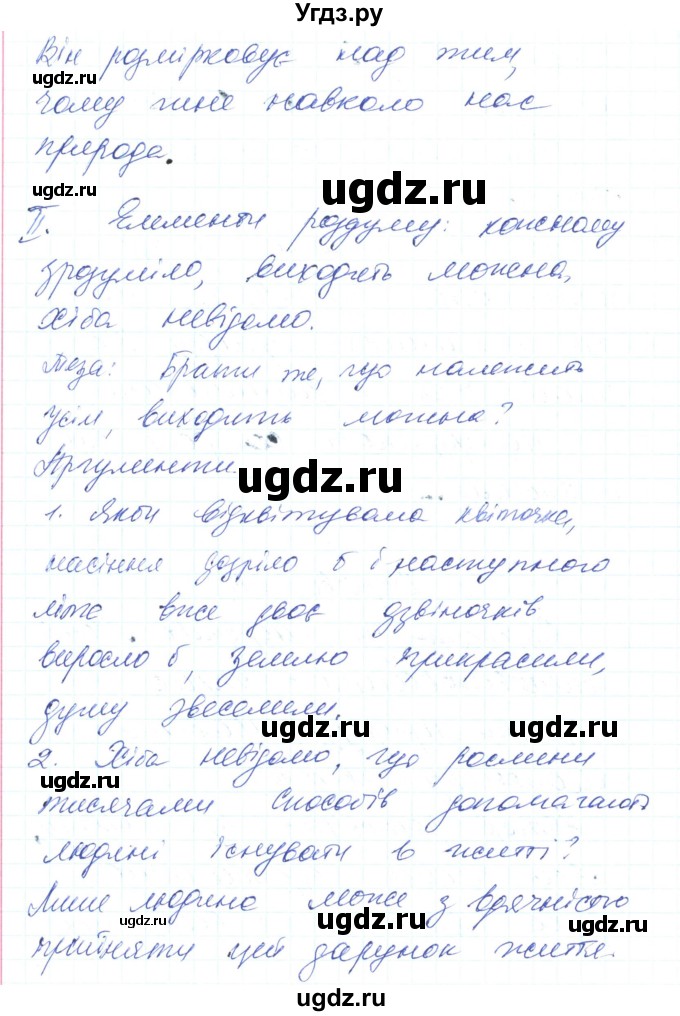 Угдз.ру
Він розмірковує над тим,
ugdz.ru
чому гине навколо нас
ugdz.ru
природа.
ugdz.ru
ugdz.ru
II. Елементи роздуму: кожному
зрозуміло, виходить можна,
хіба невідомо.
ugdz.ru
Теза: Брати те, що належить
усім, виходить можна?
Аргументи.
ugdz.ru
1. Якби відквітувала квіточка,
насіння дозріло б і наступного
літа вже двоє дзвіночків
виросло б, землю прикрасили,
душу звеселили.
ugdz.ru
ugdz.ru
2. Хіба невідомо, що рослини
ugdz.ru
тисячами способів допомагають
людині існувати в житті?
Лише людина може з вдячністю
ugdz.ru
ugdz.ru
прийняти цей дарунок життя.
ugdz.ru